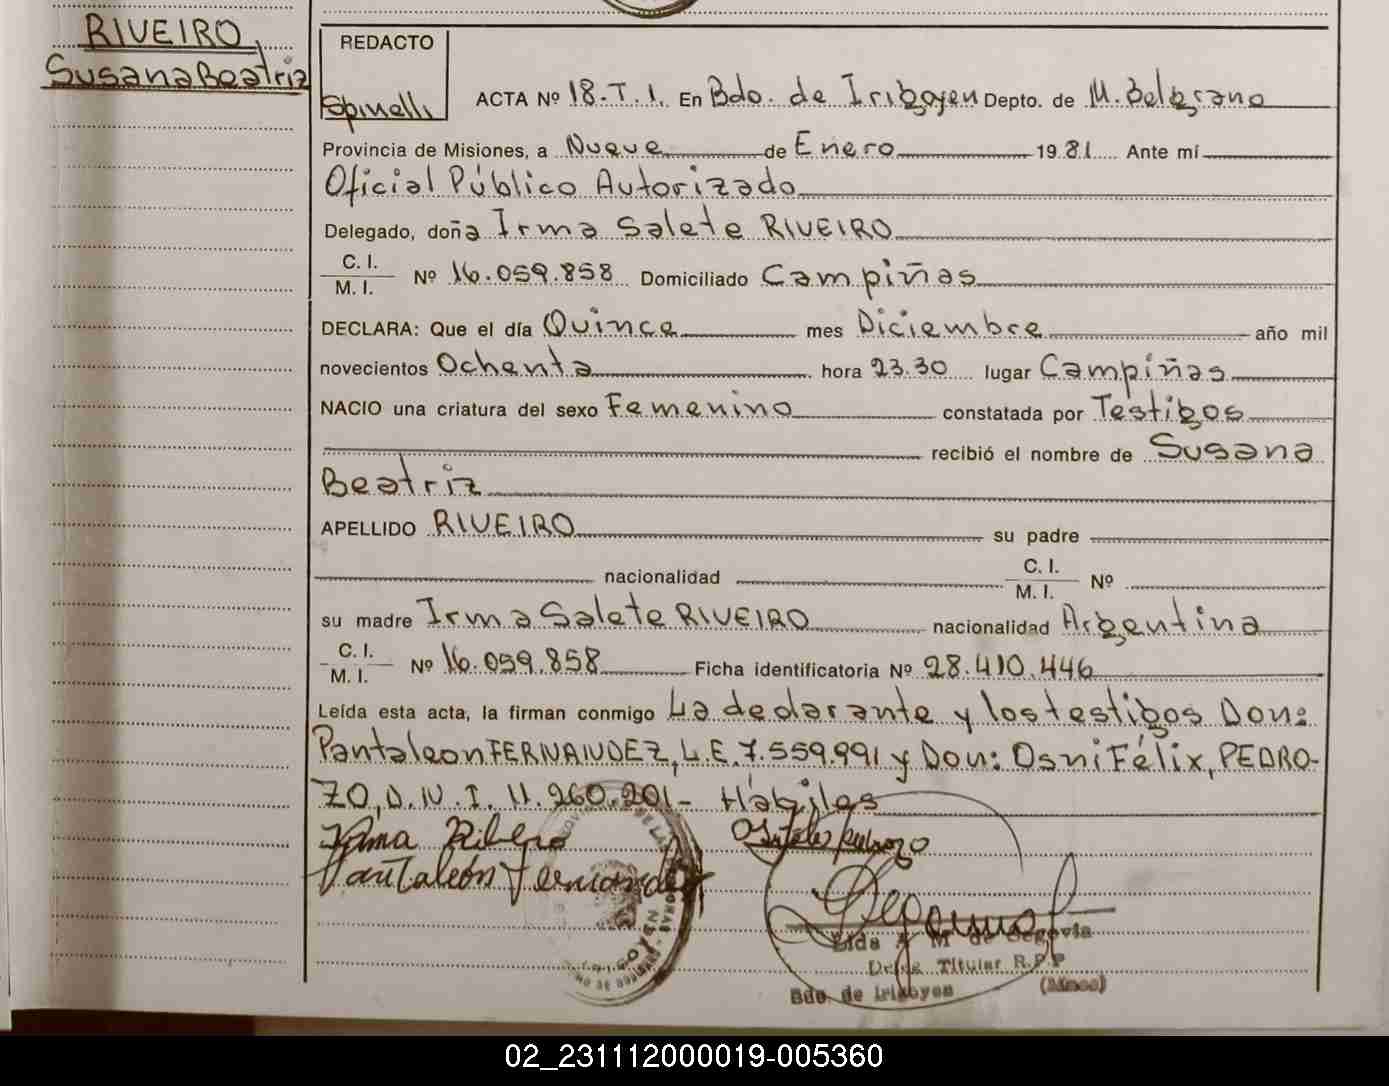 RIVEIRO,
Susana Beatriz
REDACTO
Spinelli
ACTA Nº 18.T.1. En Bdo. de Irigoyen Depto. de M. Belgrano
Provincia de Misiones, a Nueve de Enero 1981 Ante mí
Oficial Público Autorizado
Delegado, doña Irma Salete RIVEIRO
C. I.
M. I. Nº 16.059.858 Domiciliado Campiñas
DECLARA: Que el día Quince mes Diciembre año mil
novecientos Ochenta hora 23.30 lugar Campiñas
NACIO una criatura del sexo Femenino constatada por Testigos
recibió el nombre de Susana
Beatriz
APELLIDO RIVEIRO su padre
nacionalidad C. I.
M. I. Nº
su madre Irma Salete RIVEIRO nacionalidad Argentina
C. I.
M. I. Nº 16.059.858 Ficha identificatoria Nº 28.410.446
Leída esta acta, la firman conmigo La declarante y los testigos Don:
Pantaleon FERNANDEZ, L.E. 7.559.991 y Don: Osni Félix, PEDRO-
ZO, D.N.I. 11.260.201- Hábiles
Irma Ribero
Pantaleón Fernandez
M de Segovia
Titular R.P.P
Bdo. de Irigoyen (Mnes)
02_231112000019-005360